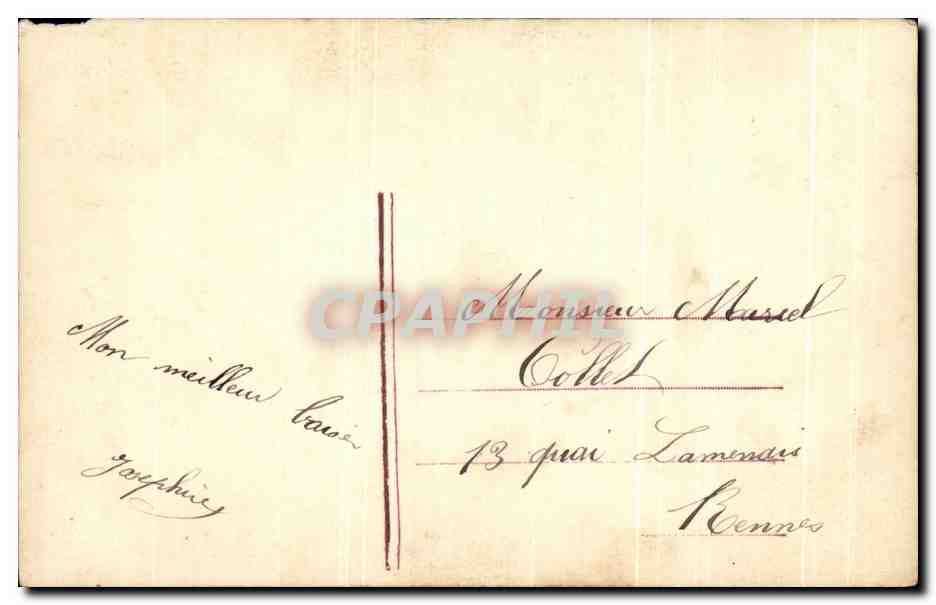 Mon meilleur baiser
Josephine
CPAPHIL
Monsieur Marcel
Collet
13 quai Lamenais
Rennes